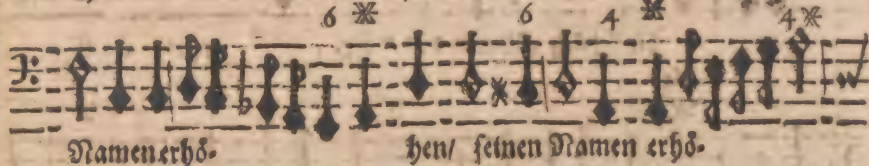 6 * 6 4 * 4 *
Namen erhö- hen/ seinen Namen erhö-